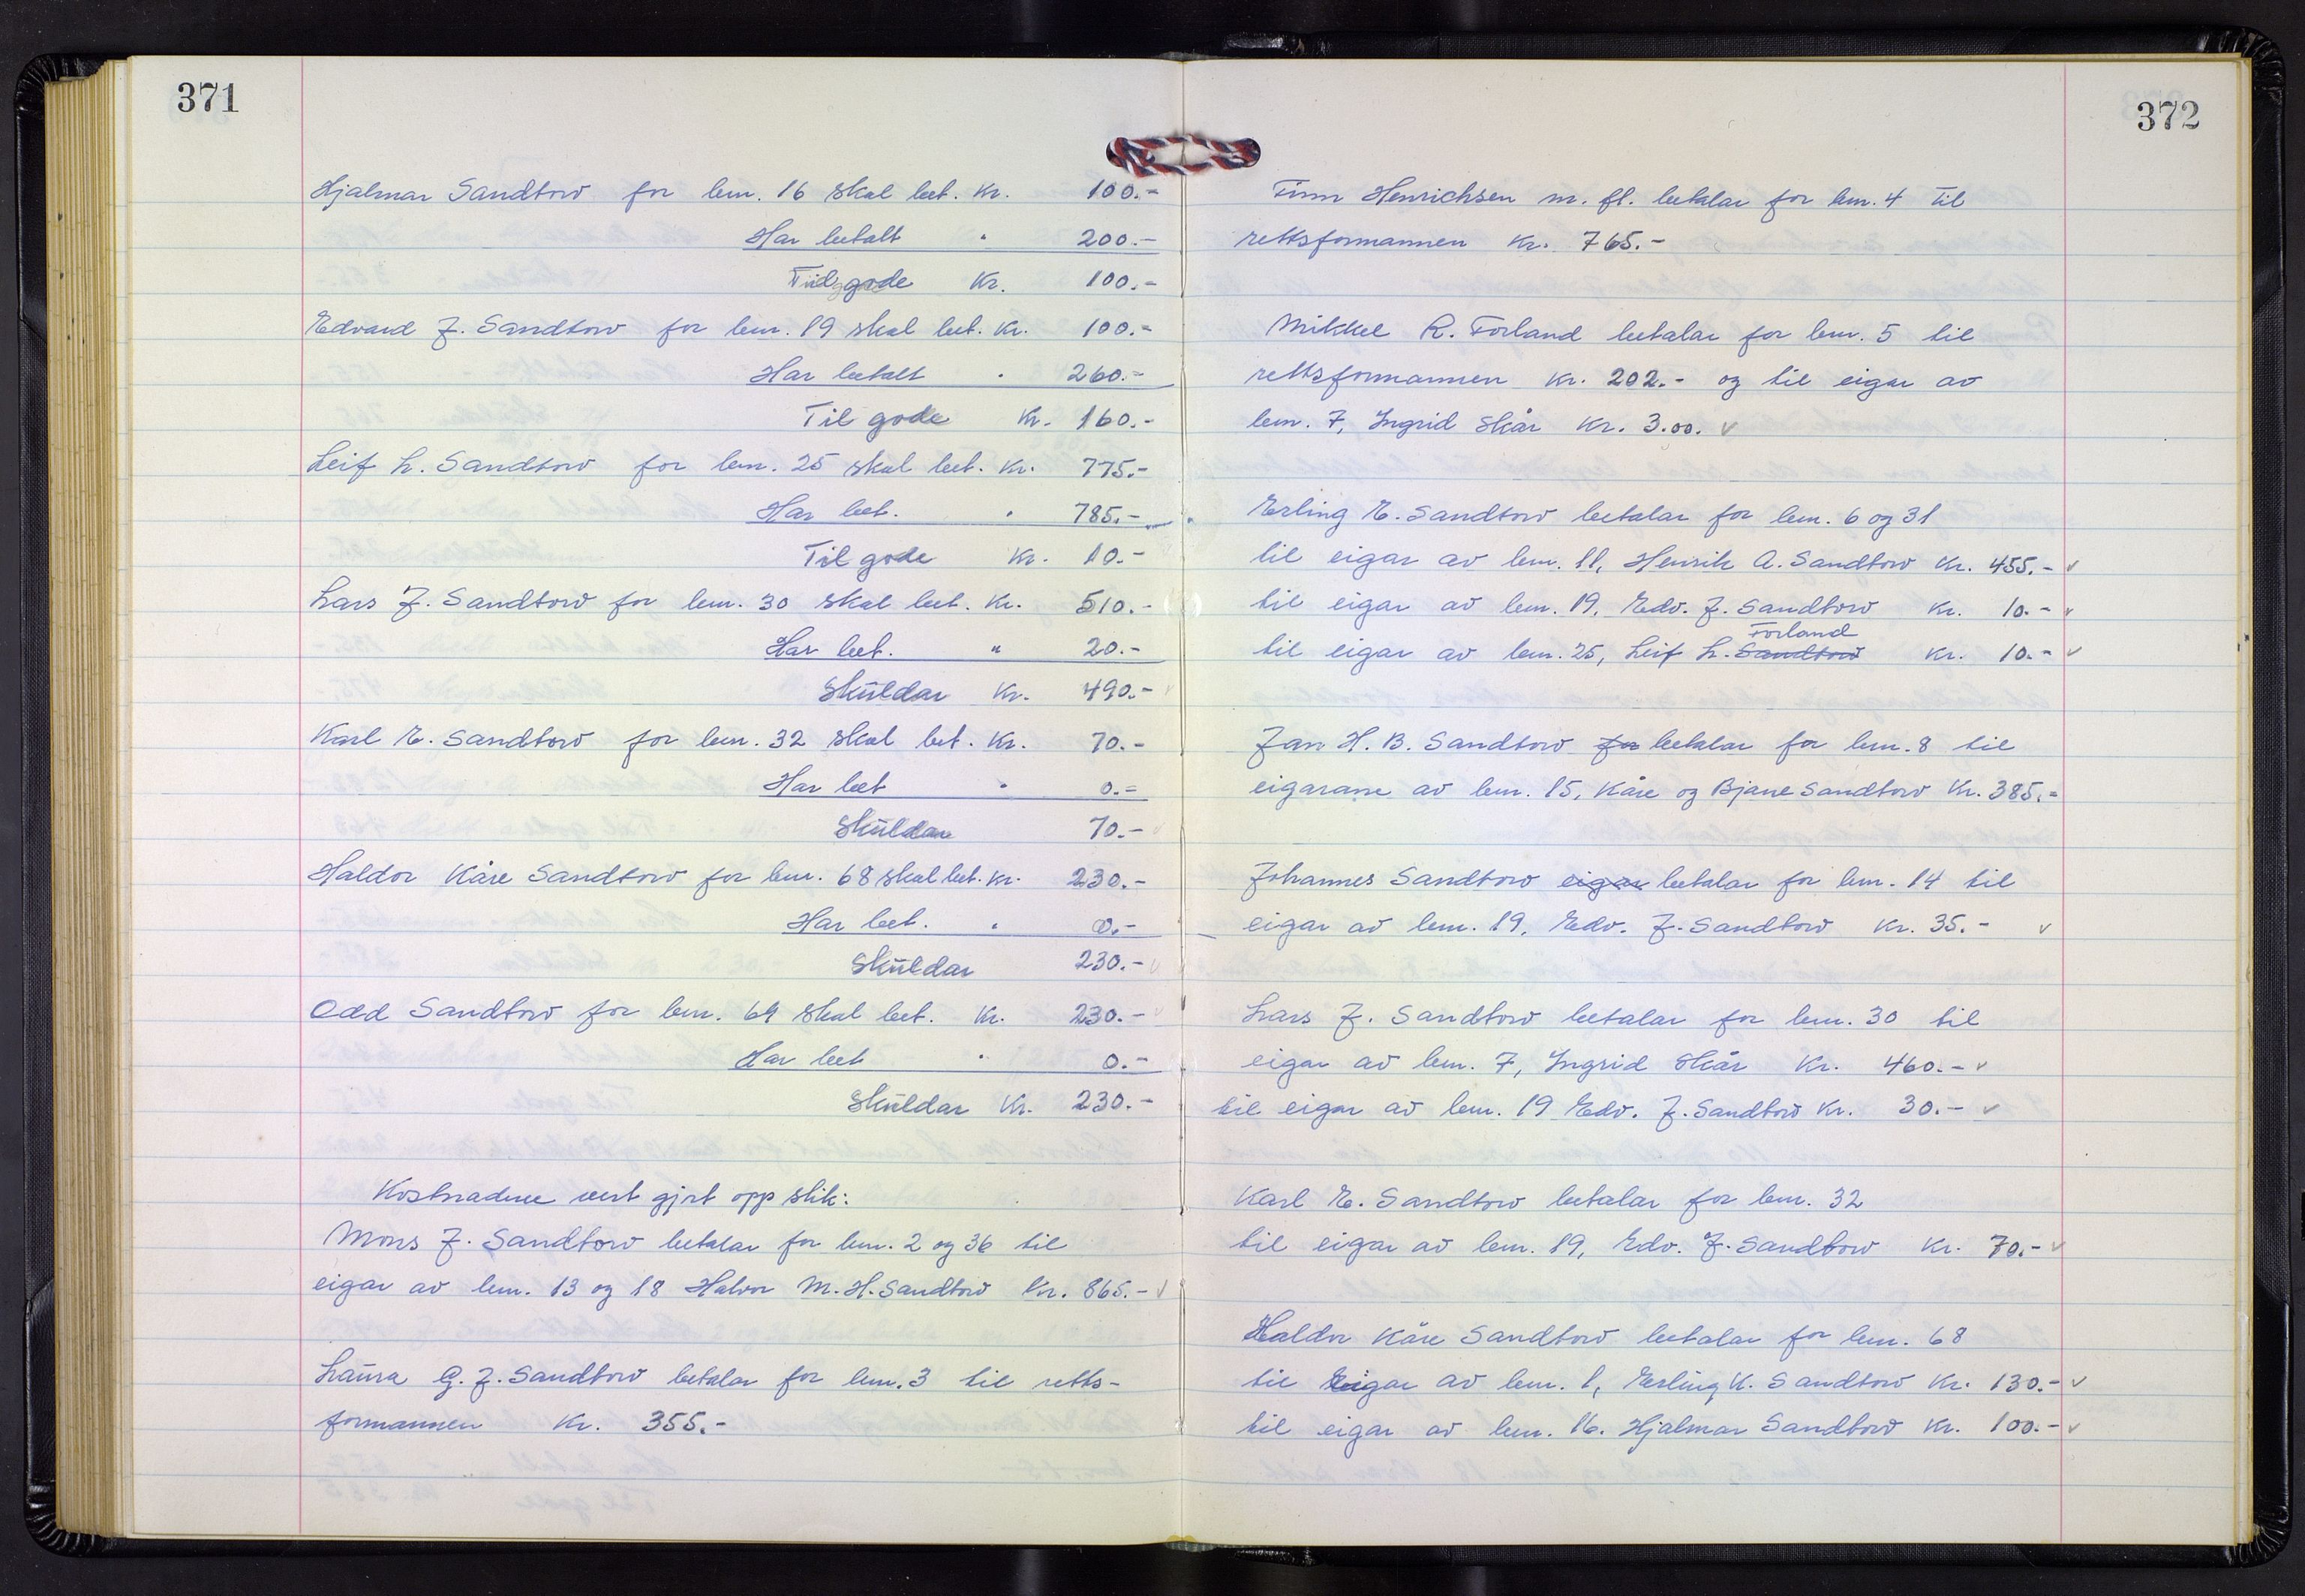 371
Hjalmar Sandtorv for lem. 16 skal bet. kr. 100.-
Har betalt " 200.-
Til gode kr. 100.-
Edvard J. Sandtorv for lem. 19 skal bet. kr. 100.-
Har betalt " 260.-
Til gode kr. 160.-
Leif L. Sandtorv for lem. 25 skal bet. kr. 775.-
Har bet. " 785.-
Til gode kr. 10.-
Lars J. Sandtorv for lem. 30 skal bet. kr. 510.-
Har bet. " 20.-
Skuldar kr. 490.-
Karl E. Sandtorv for lem. 32 skal bet. kr. 70.-
Har bet " 0.-
Skuldar 70.-
Haldor Kåre Sandtorv for lem. 68 skal bet. kr. 230.-
Har bet. " 0.-
Skuldar 230.-
Odd Sandtorv for lem. 69 skal bet. kr. 230.-
Har bet " 0.-
Skuldar kr. 230.-
Kostnadene vert gjort opp slik:
Mons J. Sandtorv betalar for lem. 2 og 36 til
eigar av lem. 13 og 18 Halvor M. H. Sandtorv kr. 865.-
Laura G. J. Sandtorv betalar for lem. 3 til retts-
formannen kr. 355.-
372
Finn Henrichsen m. fl. betalar for lem. 4 til
rettsformannen kr. 765.-
Mikkel R. Forland betalar for lem. 5 til
rettsformannen kr. 202.- og til eigar av
lem. 7, Ingrid Skår kr. 3.00. v
Erling E. Sandtorv betalar for lem. 6 og 31
til eigar av lem. 11, Henrik A. Sandtorv kr. 455.- v
til eigar av lem. 19, Edv. J. Sandtorv kr. 10.- v
Forland
til eigar av lem. 25, Leif L. Sandtorv kr. 10.- v
Jan H. B. Sandtorv for betalar for lem. 8 til
eigarane av lem. 15, Kåre og Bjane Sandtorv kr. 385.-
Johannes Sandtorv eigar betalar for lem. 14 til
eigar av lem. 19, Edv. J. Sandtorv kr. 35.- v
Lars J. Sandtorv betalar for lem. 30 til
eigar av lem. 7, Ingrid Skår kr. 460.- v
til eigar av lem. 19 Edv. J. Sandtorv kr. 30.- v
Karl E. Sandtorv betalar for lem. 32
til eigar av lem. 19, Edv. J. Sandtorv kr. 70.- v
Haldor Kåre Sandtorv betalar for lem. 68
til eigar av lem. 1, Erling K. Sandtorv kr. 130.- v
til eigar av lem. 16. Hjalmar Sandtorv kr. 100.- v